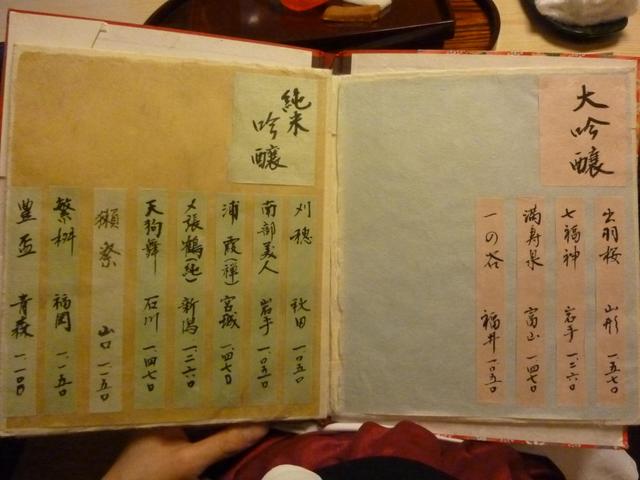 大吟醸
出羽桜 山形 一.五七〇
七福神 岩手 一.二六〇
満寿泉 富山 一.四七〇
一の谷 福井 一.〇五〇
純米
吟醸
刈穂 秋田 一.〇五〇
南部美人 岩手 一.〇五〇
浦霞(禅) 宮城 一.四七〇
〆張鶴(純) 新潟 一.二六〇
天狗舞 石川 一.四七〇
獺祭 山口 一.一五〇
繁桝 福岡 一.一五〇
豊盃 青森 一.一〇〇